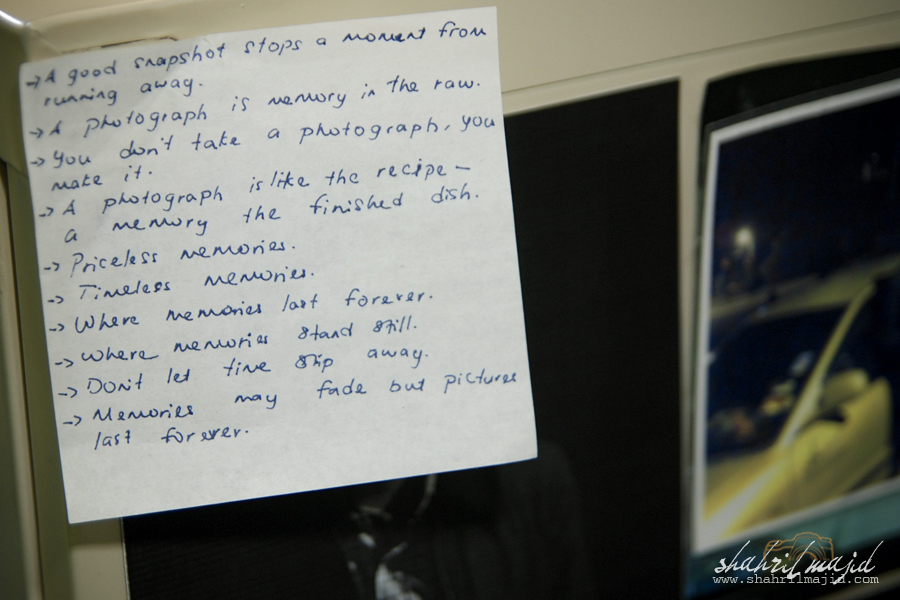 → A good snapshot stops a moment from
running away.
→ A photograph is memory in the raw.
→ You don't take a photograph, you
make it.
→ A photograph is like the recipe –
a memory the finished dish.
→ Priceless memories.
→ Timeless memories.
→ Where memories last forever.
→ Where memories stand still.
→ Don't let time slip away.
→ Memories may fade but pictures
last forever.
shahril majid
www.shahrilmajid.com